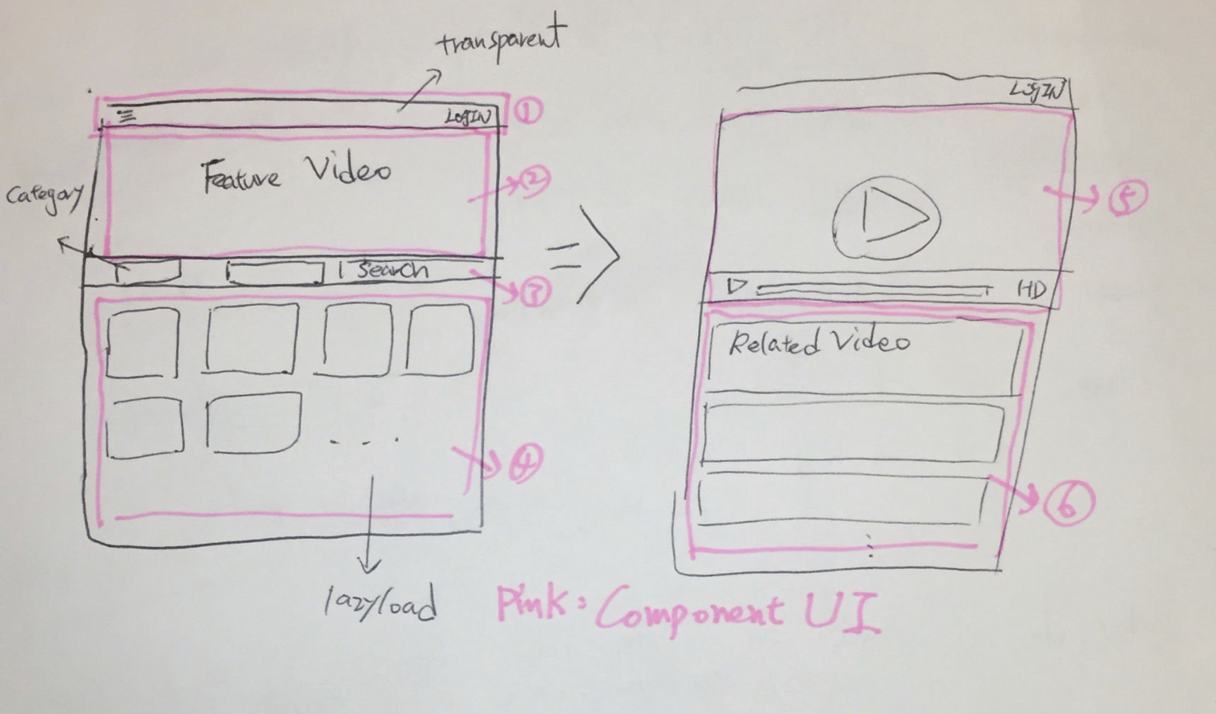 transparent
LOGIN
①
Feature Video
②
Category
| Search
③
④
lazyload
LOGIN
⑤
HD
Related Video
⑥
Pink: Component UI